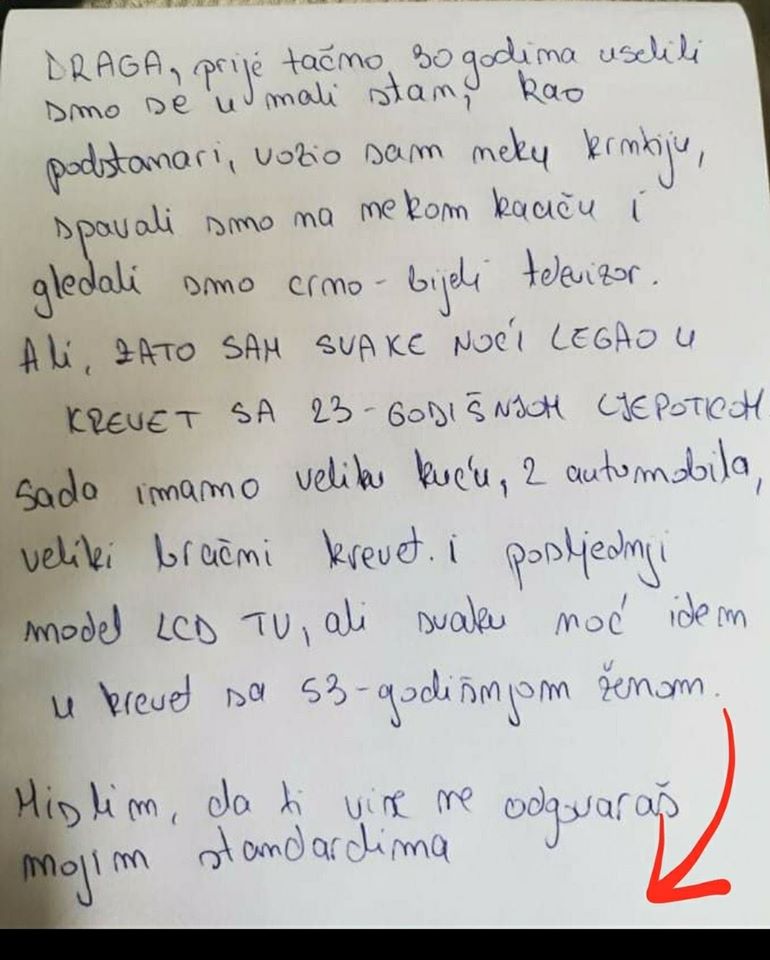 DRAGA, prije tačno 30 godima uselili
smo se u mali stan, kao
podstanari, vozio sam neku krntiju,
spavali smo na nekom kauču i
gledali smo crno-bijeli televizor.
Ali, ZATO SAM SVAKE NOĆI LEGAO U
KREVET SA 23-GODIŠNJOM LJEPOTICOM
Sada imamo veliku kuću, 2 automobila,
veliki bračni krevet. i posljednji
model LCD TV, ali svaku noć idem
u krevet sa 53-godišnjom ženom.
Mislim, da ti više ne odgovaraš
mojim standardima